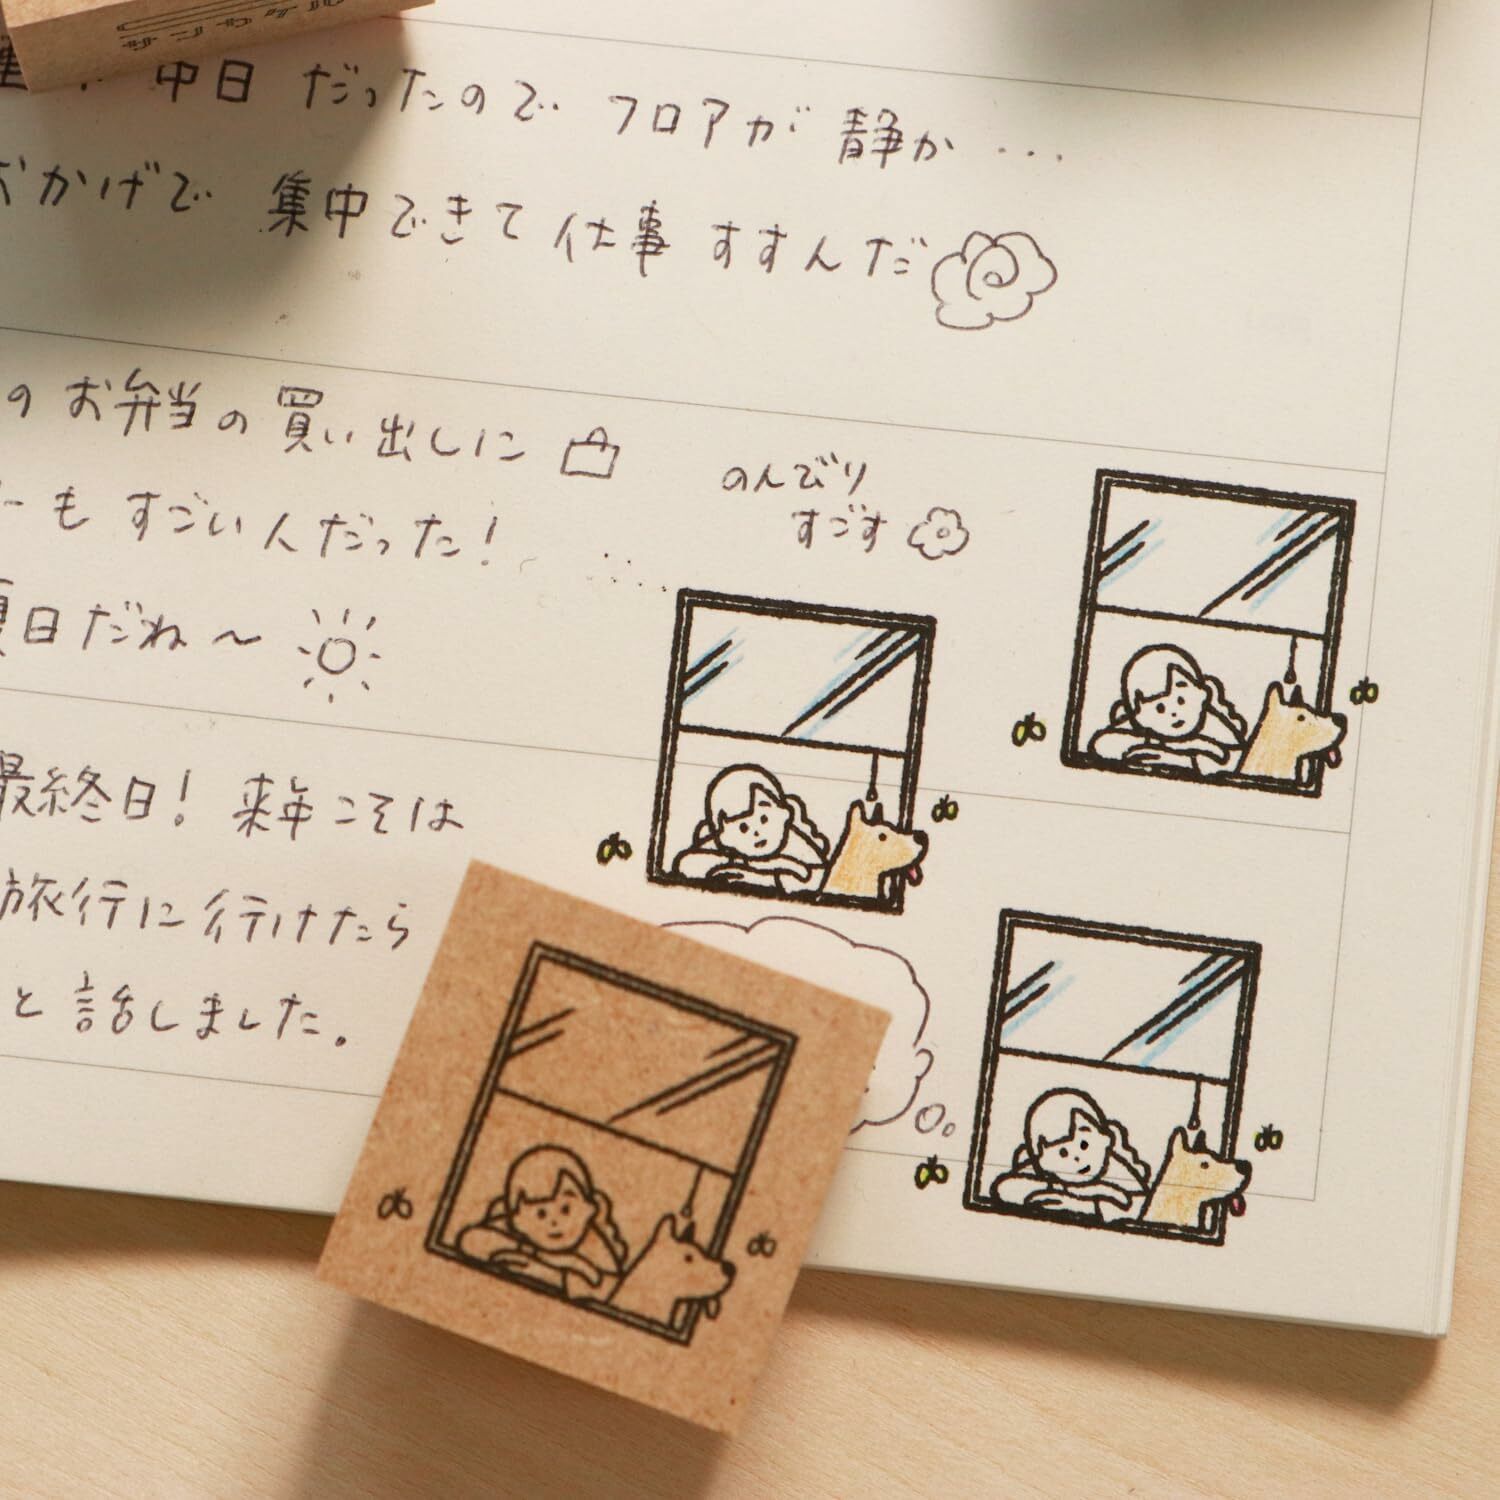 中日だったのでフロアが静か...
おかげで集中できて仕事すすんだ
のお弁当の買い出しに
ーもすごい人だった!
のんびり
すごす
夏日だね〜
最終日!来年こそは
旅行に行けたら
と話しました。